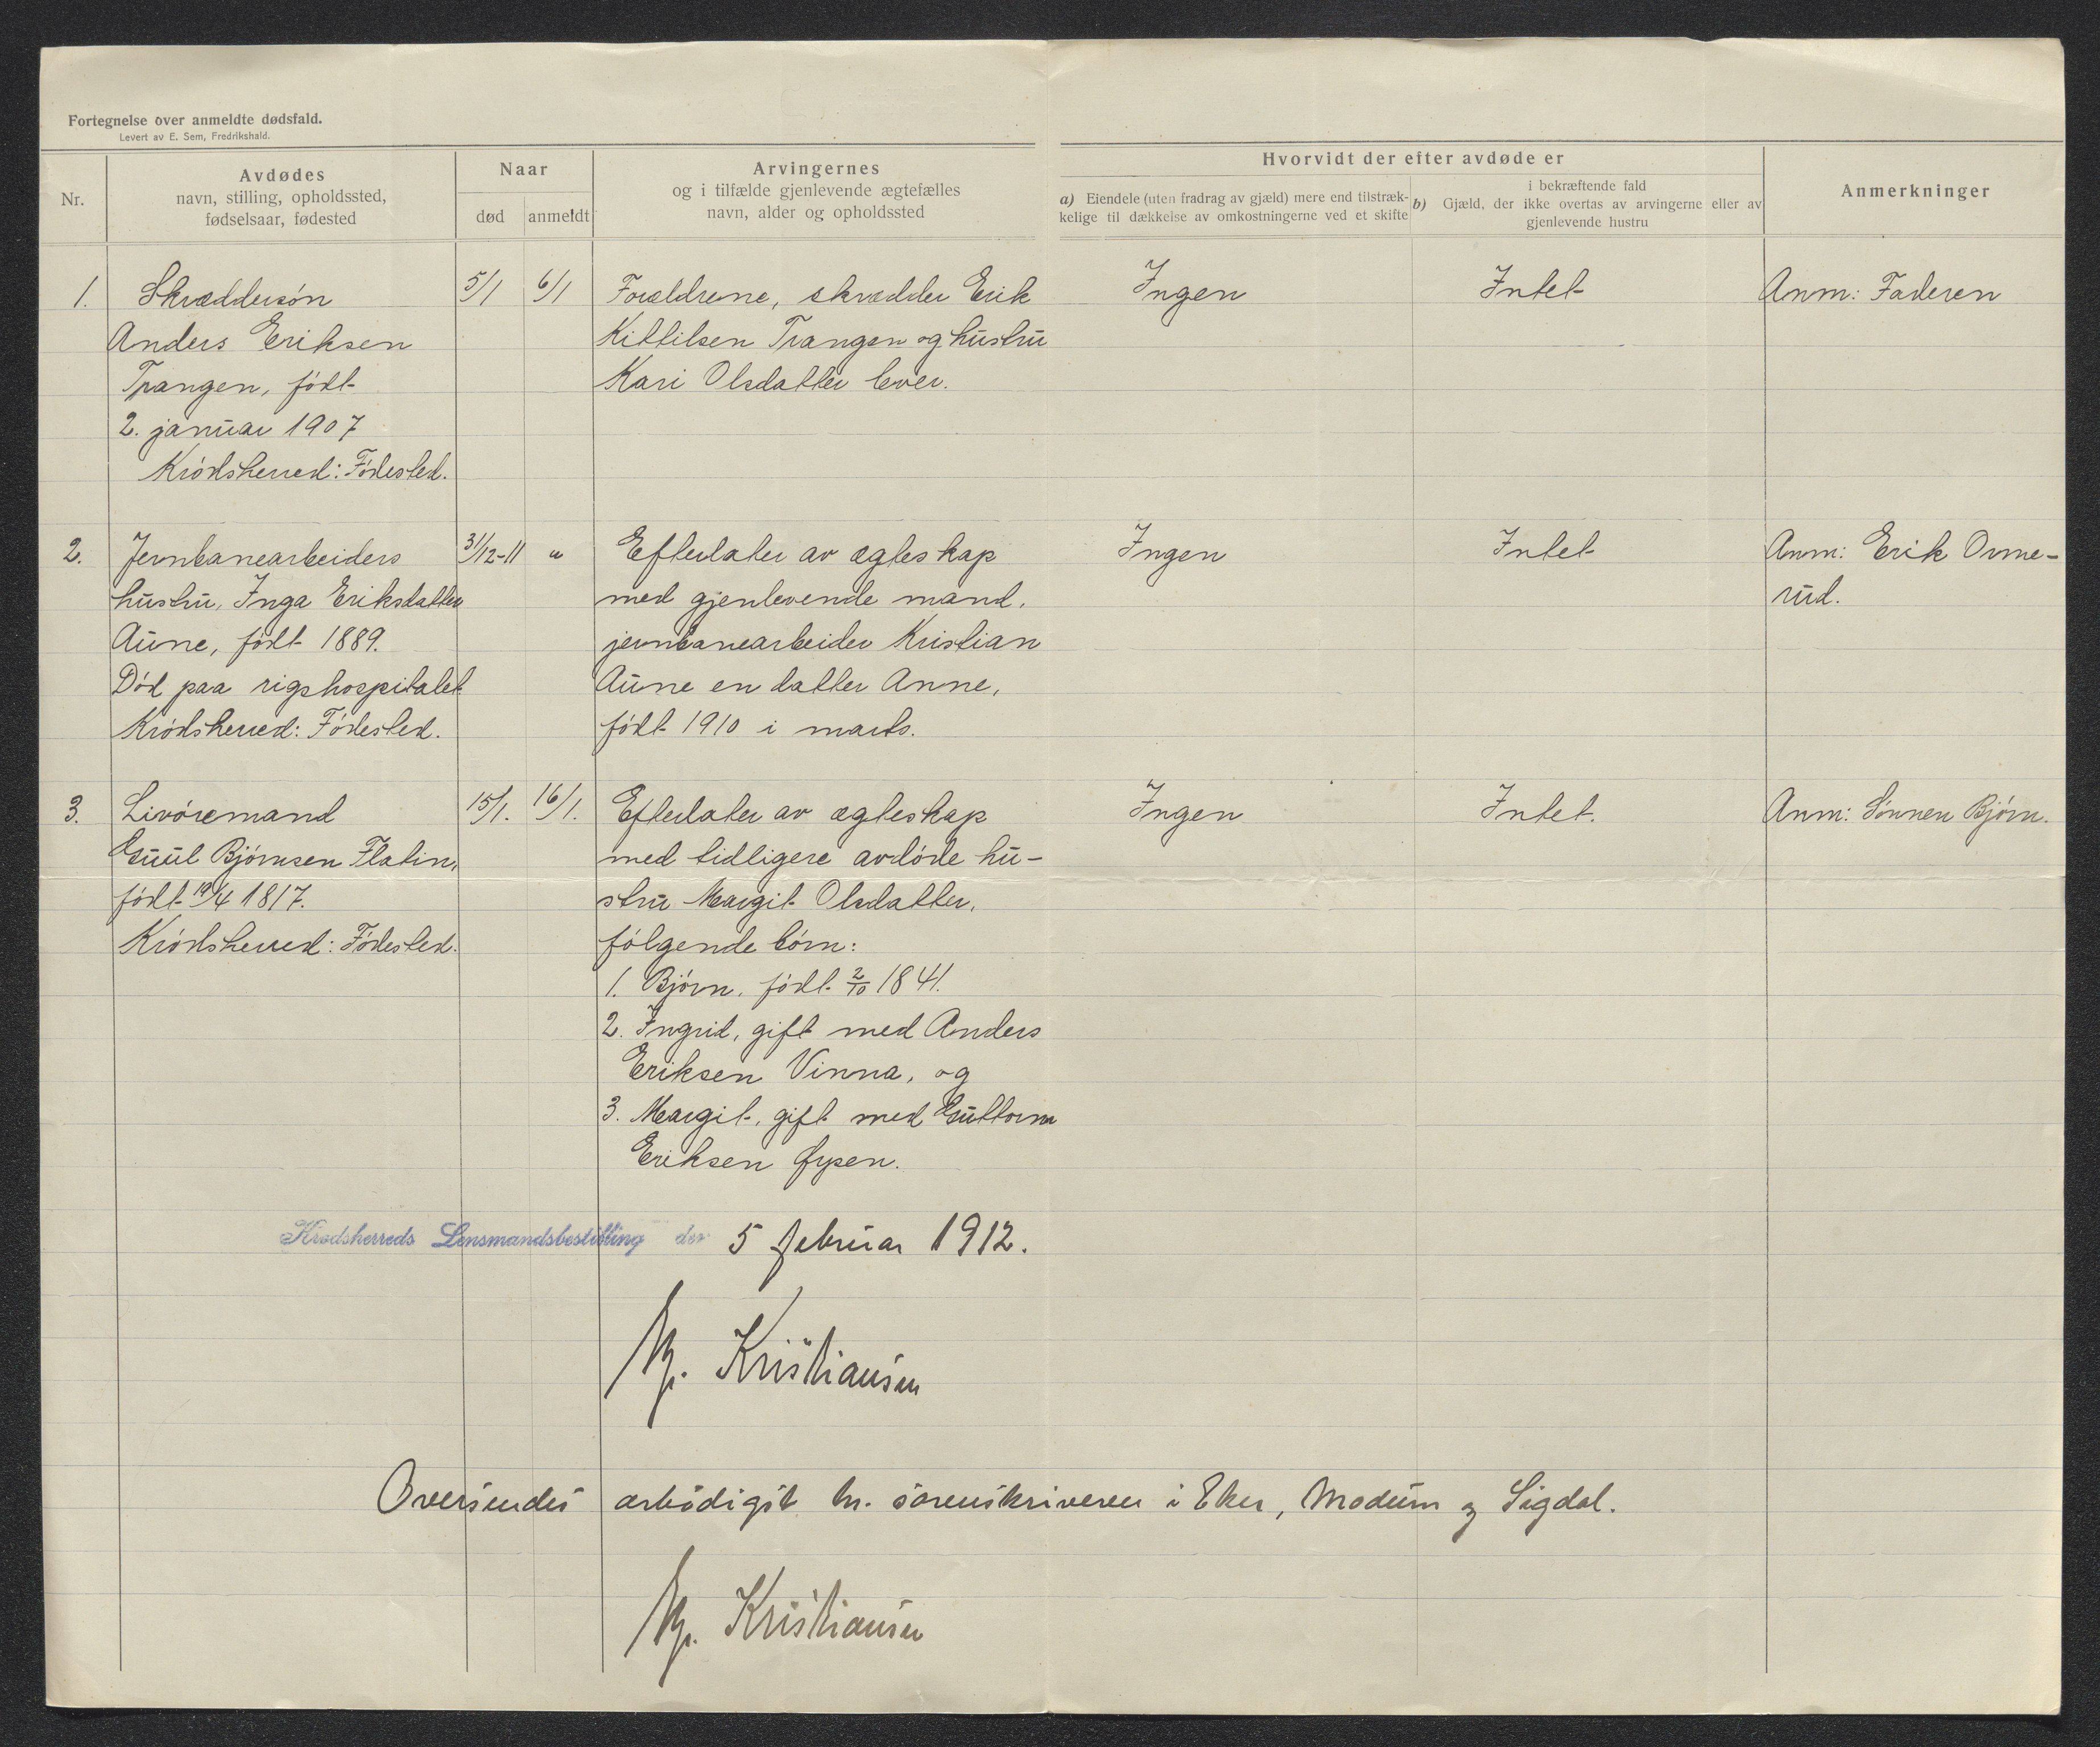 Fortegnelse over anmeldte dødsfald.
Levert av E. Sem, Fredrikshald.
Nr.
Avdødes
navn, stilling, opholdssted,
fødselsaar, fødested
Naar
død
anmeldt
Arvingernes
og i tilfælde gjenlevende ægtefælles
navn, alder og opholdssted
Hvorvidt der efter avdøde er
a) Eiendele (uten fradrag av gjæld) mere end tilstræk-
kelige til dækkelse av omkostningerne ved et skifte
i bekræftende fald
b) Gjæld, der ikke overtas av arvingerne eller av
gjenlevende hustru
Anmerkninger
1.
Skræddersøn
Anders Eriksen
Trangen, født
2. januar 1907
Krødsherred: Fødested.
5/1
6/1
Forældrene, skrædder Erik
Kittilsen Trangen og hustru
Kari Olsdatter lever.
Ingen
Intet
Anm: Faderen
2.
Jernbanearbeiders
hustru, Inga Eriksdatter
Aune, født 1889.
Død paa rigshospitalet
Krødsherred: Fødested.
31/12-11
"
Efterlater av ægteskap
med gjenlevende mand,
jernbanearbeider Kristian
Aune en datter Anne,
født 1910 i marts.
Ingen
Intet
Anm: Erik Orme-
rud.
3.
Livøremand
Guul Bjørnsen Flatin,
født 19/4 1817.
Krødsherred: Fødested.
15/1.
16/1.
Efterlater av ægteskap
med tidligere avdøde hu-
stru Margit Olsdatter,
følgende børn:
1. Bjørn, født 2/10 1841.
2. Ingrid, gift med Anders
Eriksen Vinna, og
3. Margit, gift med Guttorm
Eriksen
Ingen
Intet.
Anm: Sønnen Bjørn.
Krødsherreds Lensmandsbestilling den 5 februar 1912.
Kristiansen
Oversendes ærbødigst hr. sorenskriveren i Eker, Modum og Sigdal.
Kristiansen